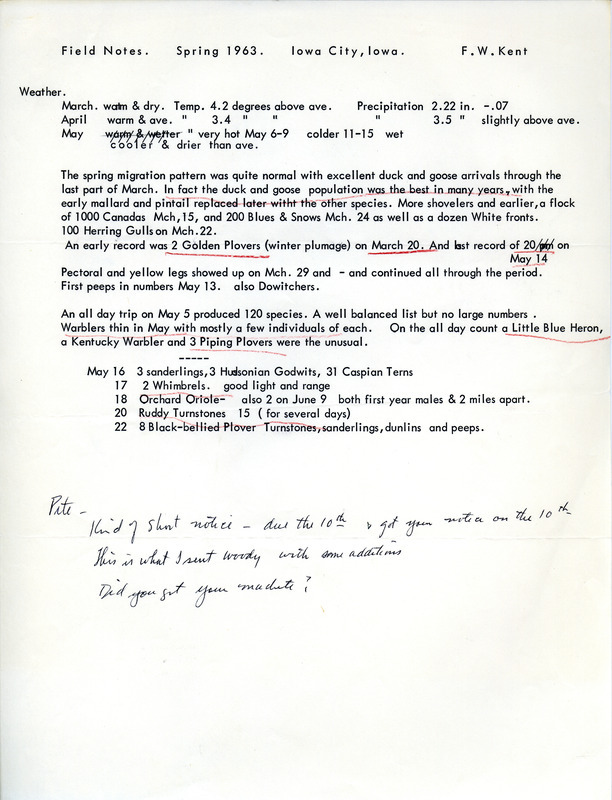 Field Notes. Spring 1963. Iowa City,Iowa. F.W.Kent
Weather.
March. warm & dry. Temp. 4.2 degrees above ave. Precipitation 2.22 in. -.07
April warm & ave. " 3.4 " " " 3.5 " slightly above ave.
May warm & wetter " very hot May 6-9 colder 11-15 wet
cooler & drier than ave.
The spring migration pattern was quite normal with excellent duck and goose arrivals through the
last part of March. In fact the duck and goose population was the best in many years, with the
early mallard and pintail replaced later witht the other species. More shovelers and earlier,a flock
of 1000 Canadas Mch,15, and 200 Blues & Snows Mch. 24 as well as a dozen White fronts.
100 Herring Gulls on Mch.22.
An early record was 2 Golden Plovers (winter plumage) on March 20. And last record of 20 on
May 14
Pectoral and yellow legs showed up on Mch. 29 and - and continued all through the period.
First peeps in numbers May 13. also Dowitchers.
An all day trip on May 5 produced 120 species. A well balanced list but no large numbers .
Warblers thin in May with mostly a few individuals of each. On the all day count a Little Blue Heron,
a Kentucky Warbler and 3 Piping Plovers were the unusual.
-----
May 16 3 sanderlings,3 Hudsonian Godwits, 31 Caspian Terns
17 2 Whimbrels. good light and range
18 Orchard Oriole- also 2 on June 9 both first year males & 2 miles apart.
20 Ruddy Turnstones 15 ( for several days)
22 8 Black-bellied Plover Turnstones,sanderlings,dunlins and peeps.
Pete -
Kind of short notice - due the 10th & got your notice on the 10th
This is what I sent Woody with some additions
Did you get your machete?